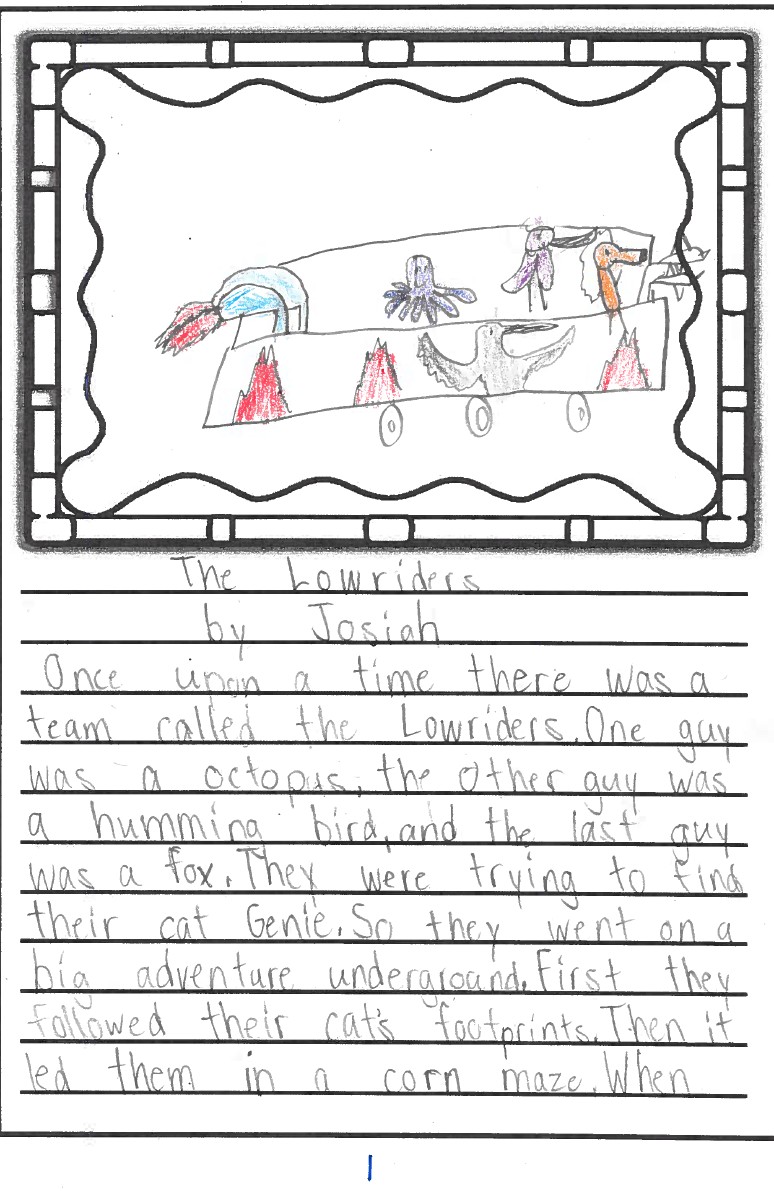 The Lowriders
by Josiah
Once upon a time there was a
team called the Lowriders. One guy
was a octopus, the other guy was
a humming bird, and the last guy
was a fox. They were trying to find
their cat Genie. So they went on a
big adventure underground. First they
followed their cat's footprints. Then it
led them in a corn maze. When
1